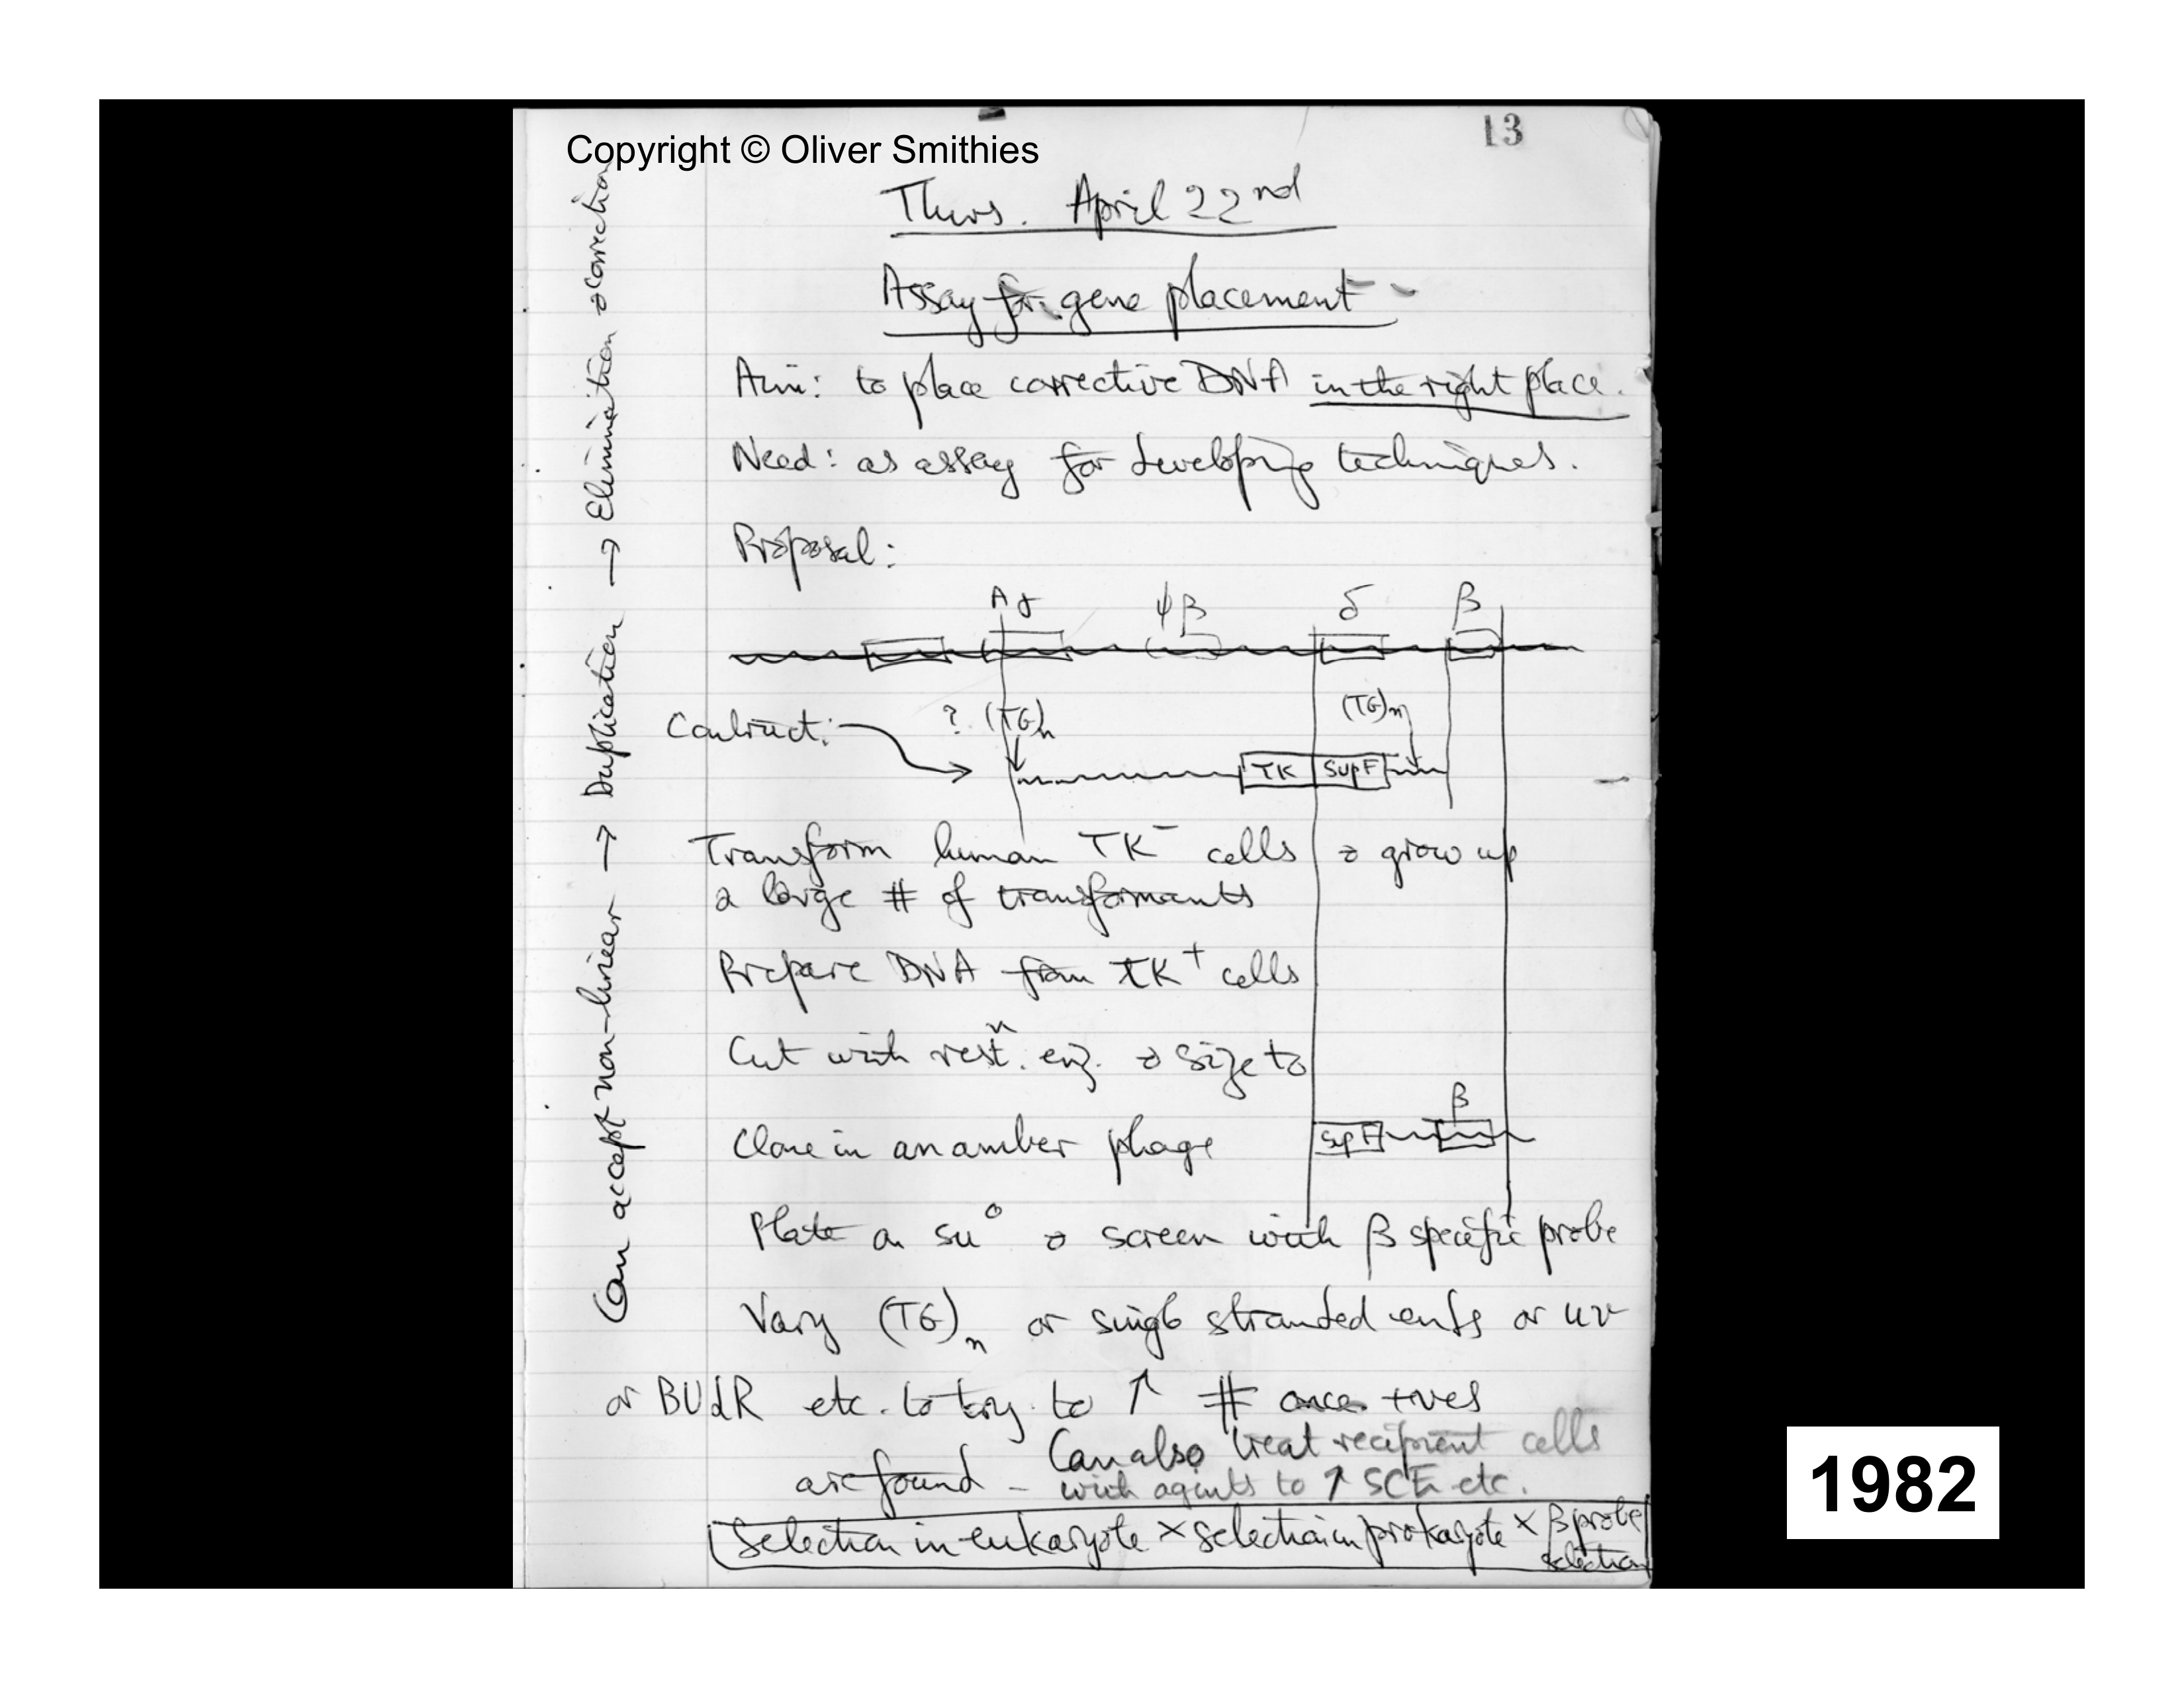 13
Copyright © Oliver Smithies
Thurs. April 22nd
Assay for gene placement
Aim: to place corrective DNA in the right place.
Need: as assay for developing techniques.
Proposal:
Aγ ψβ δ β
Construct: ? (TG)n (TG)n
TK SupF
Transform human TK⁻ cells & grow up
a large # of transformants
Prepare DNA from TK⁺ cells
Cut with restn. enz. & size to
β
Clone in an amber phage SupF
Plate on su° & screen with β specific probe
Vary (TG)n or single stranded ends or uv
or BUdR etc. to try to ↑ # +ves
are found – Can also treat recipient cells
with agents to ↑ SCE etc.
Selection in eukaryote × selection in prokaryote × β probe
selection
Can accept non-linear → Duplication → Elimination & correction
1982